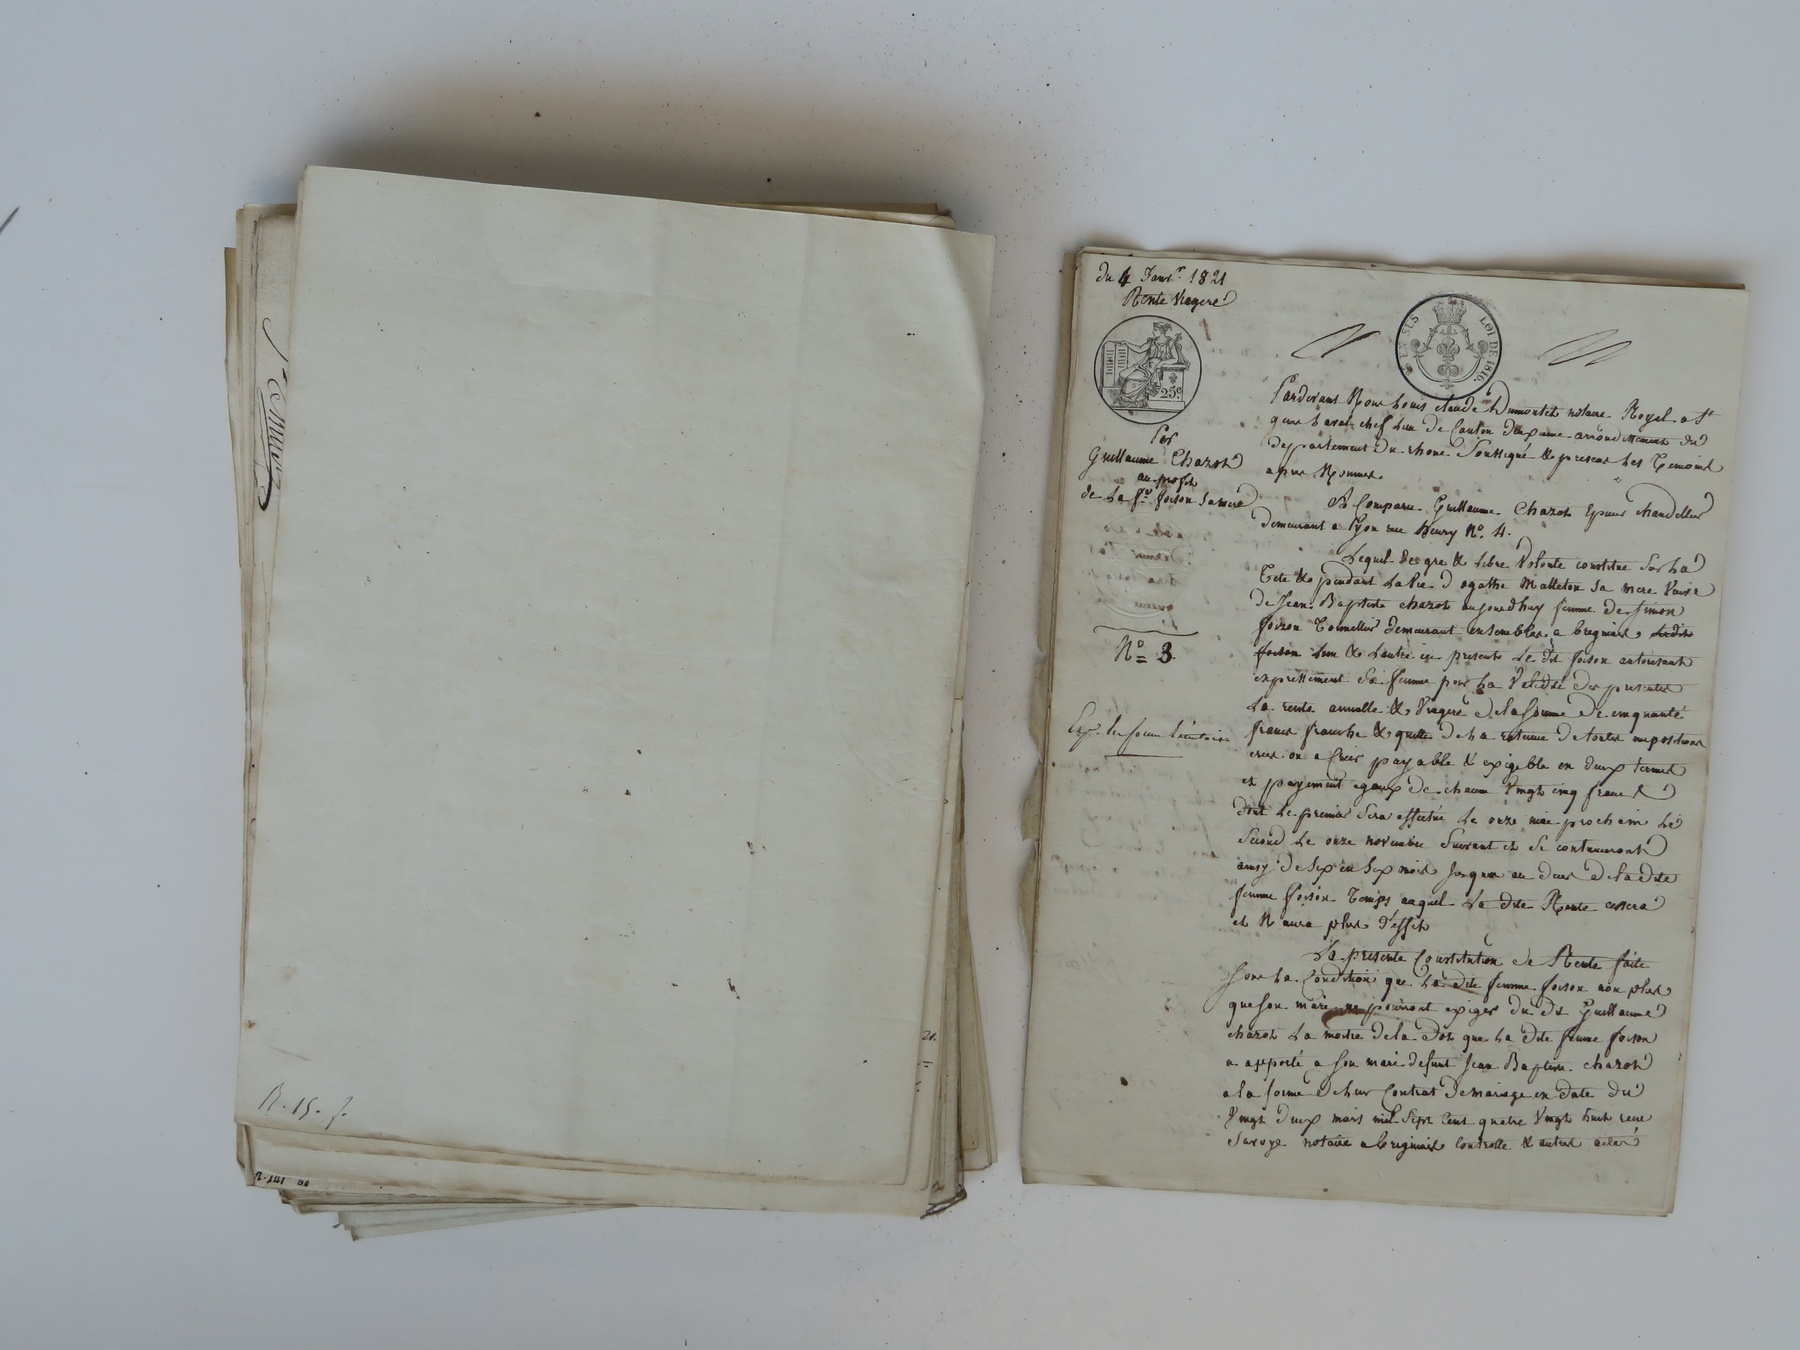 R. 15. f.
du 4 Janv.r 1821
Rente Viagere
EN SUS
LOI DE 1816.
25c
Par
Guillaume Chazot
au profit
de La fe foison Sa mere
No 3.
Pardevant Nous Louis claude Dumontet notaire Royal a St
genis Laval chef Lieu de Canton deuxieme arrondissement du
departement du rhone Soussigné & presens Les Temoins
apres Nommes.
A Comparu Guillaume Chazot Epicier chandellier
demeurant a Lyon rue henry No. 4.
Lequel de gre & Libre Volonte constitue Sur La
Tete & pendant La Vie d'agathe Malleton Sa mere Veuve
de Jean Baptiste chazot aujourdhuy femme de Simon
foison Tonnellier demeurant ensembles a brignais
foison Lun & Lautre ici presents Le dit foison autorisant
expressement Sa femme pour La Validité des presentes
La rente annuelle & Viagere de la Somme de cinquante
francs franche & quitte de La retenue de toutes impositions
crees ou a Creer payable & exigible en deux termes
et payement egaux de chacun Vingt cinq francs
dont Le premier Sera effectué Le onze mai prochain Le
Second Le onze novembre Suivant et Se continueront
ainsy de Six en Six mois jusques au deces de la dite
femme foison Temps auquel La dite Rente cessera
et N'aura plus d'effet
La presente Constitution de Rente faite
Sous La Condition que La dite femme foison non plus
que Son mari ne pourront exiger du dit Guillaume
chazot La moitie de la dot que La dite femme foison
a apporté a Son mari defunt Jean Baptiste chazot
a la forme de Leur Contrat de mariage en date du
Vingt deux mars mil Sept Cent quatre Vingt huit recu
Savoye notaire a brignais Controlle &